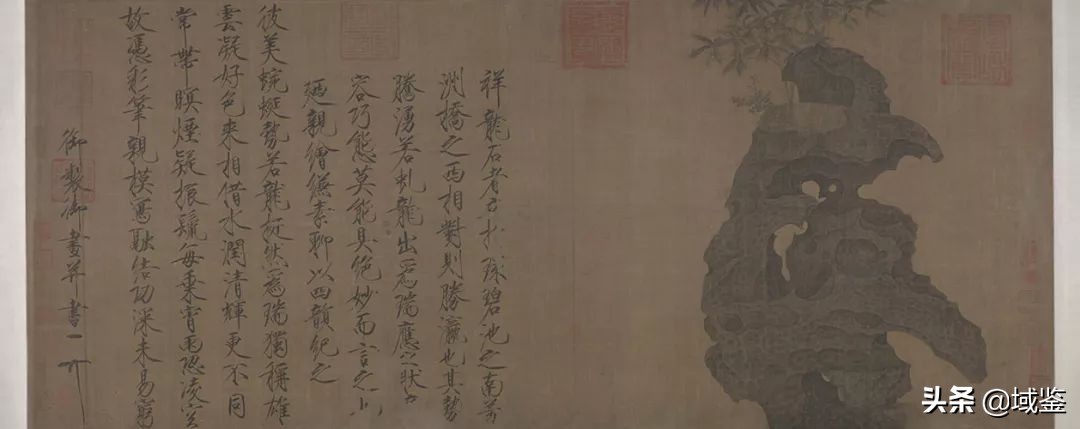 祥龍石者立於環碧池之南芳
洲橋之西相對則勝瀛也其勢
騰湧若虬龍出為瑞應之狀奇
容巧態莫能具絕妙而言之也
廼親繪縑素聊以四韻紀之
彼美蜿蜒勢若龍挺然為瑞獨稱雄
雲凝好色來相借水潤清輝更不同
常帶暝煙疑振鬣每乘宵雨恐凌空
故憑彩筆親模寫融結功深未易窮
御製御畫并書
头条 @域鉴